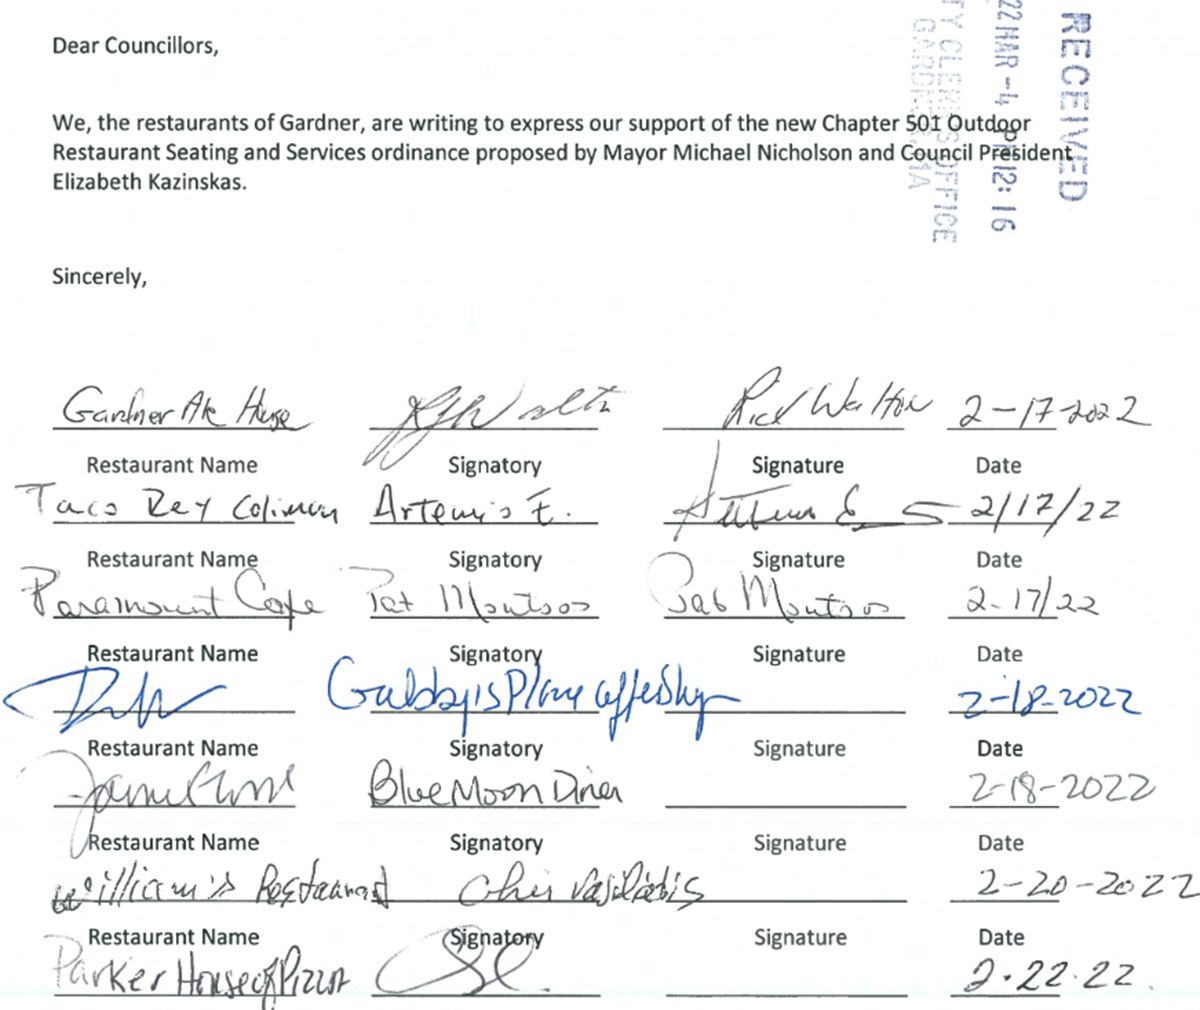 Dear Councillors,
We, the restaurants of Gardner, are writing to express our support of the new Chapter 501 Outdoor
Restaurant Seating and Services ordinance proposed by Mayor Michael Nicholson and Council President
Elizabeth Kazinskas.
RECEIVED
22 MAR -4 PM 12: 16
TY CLERK'S OFFICE
GARDNER, MA
Sincerely,
Gardner Ale House Rick Walton 2-17-2022
Restaurant Name Signatory Signature Date
Taco Rey Coliman Artemis E. 2/17/22
Restaurant Name Signatory Signature Date
Paramount Cafe Pat Montsos Pat Montsos 2-17/22
Restaurant Name Signatory Signature Date
2-18-2022
Restaurant Name Signatory Signature Date
Blue Moon Diner 2-18-2022
Restaurant Name Signatory Signature Date
William's Restaurant 2-20-2022
Restaurant Name Signatory Signature Date
Parker House of Pizza 2.22.22.